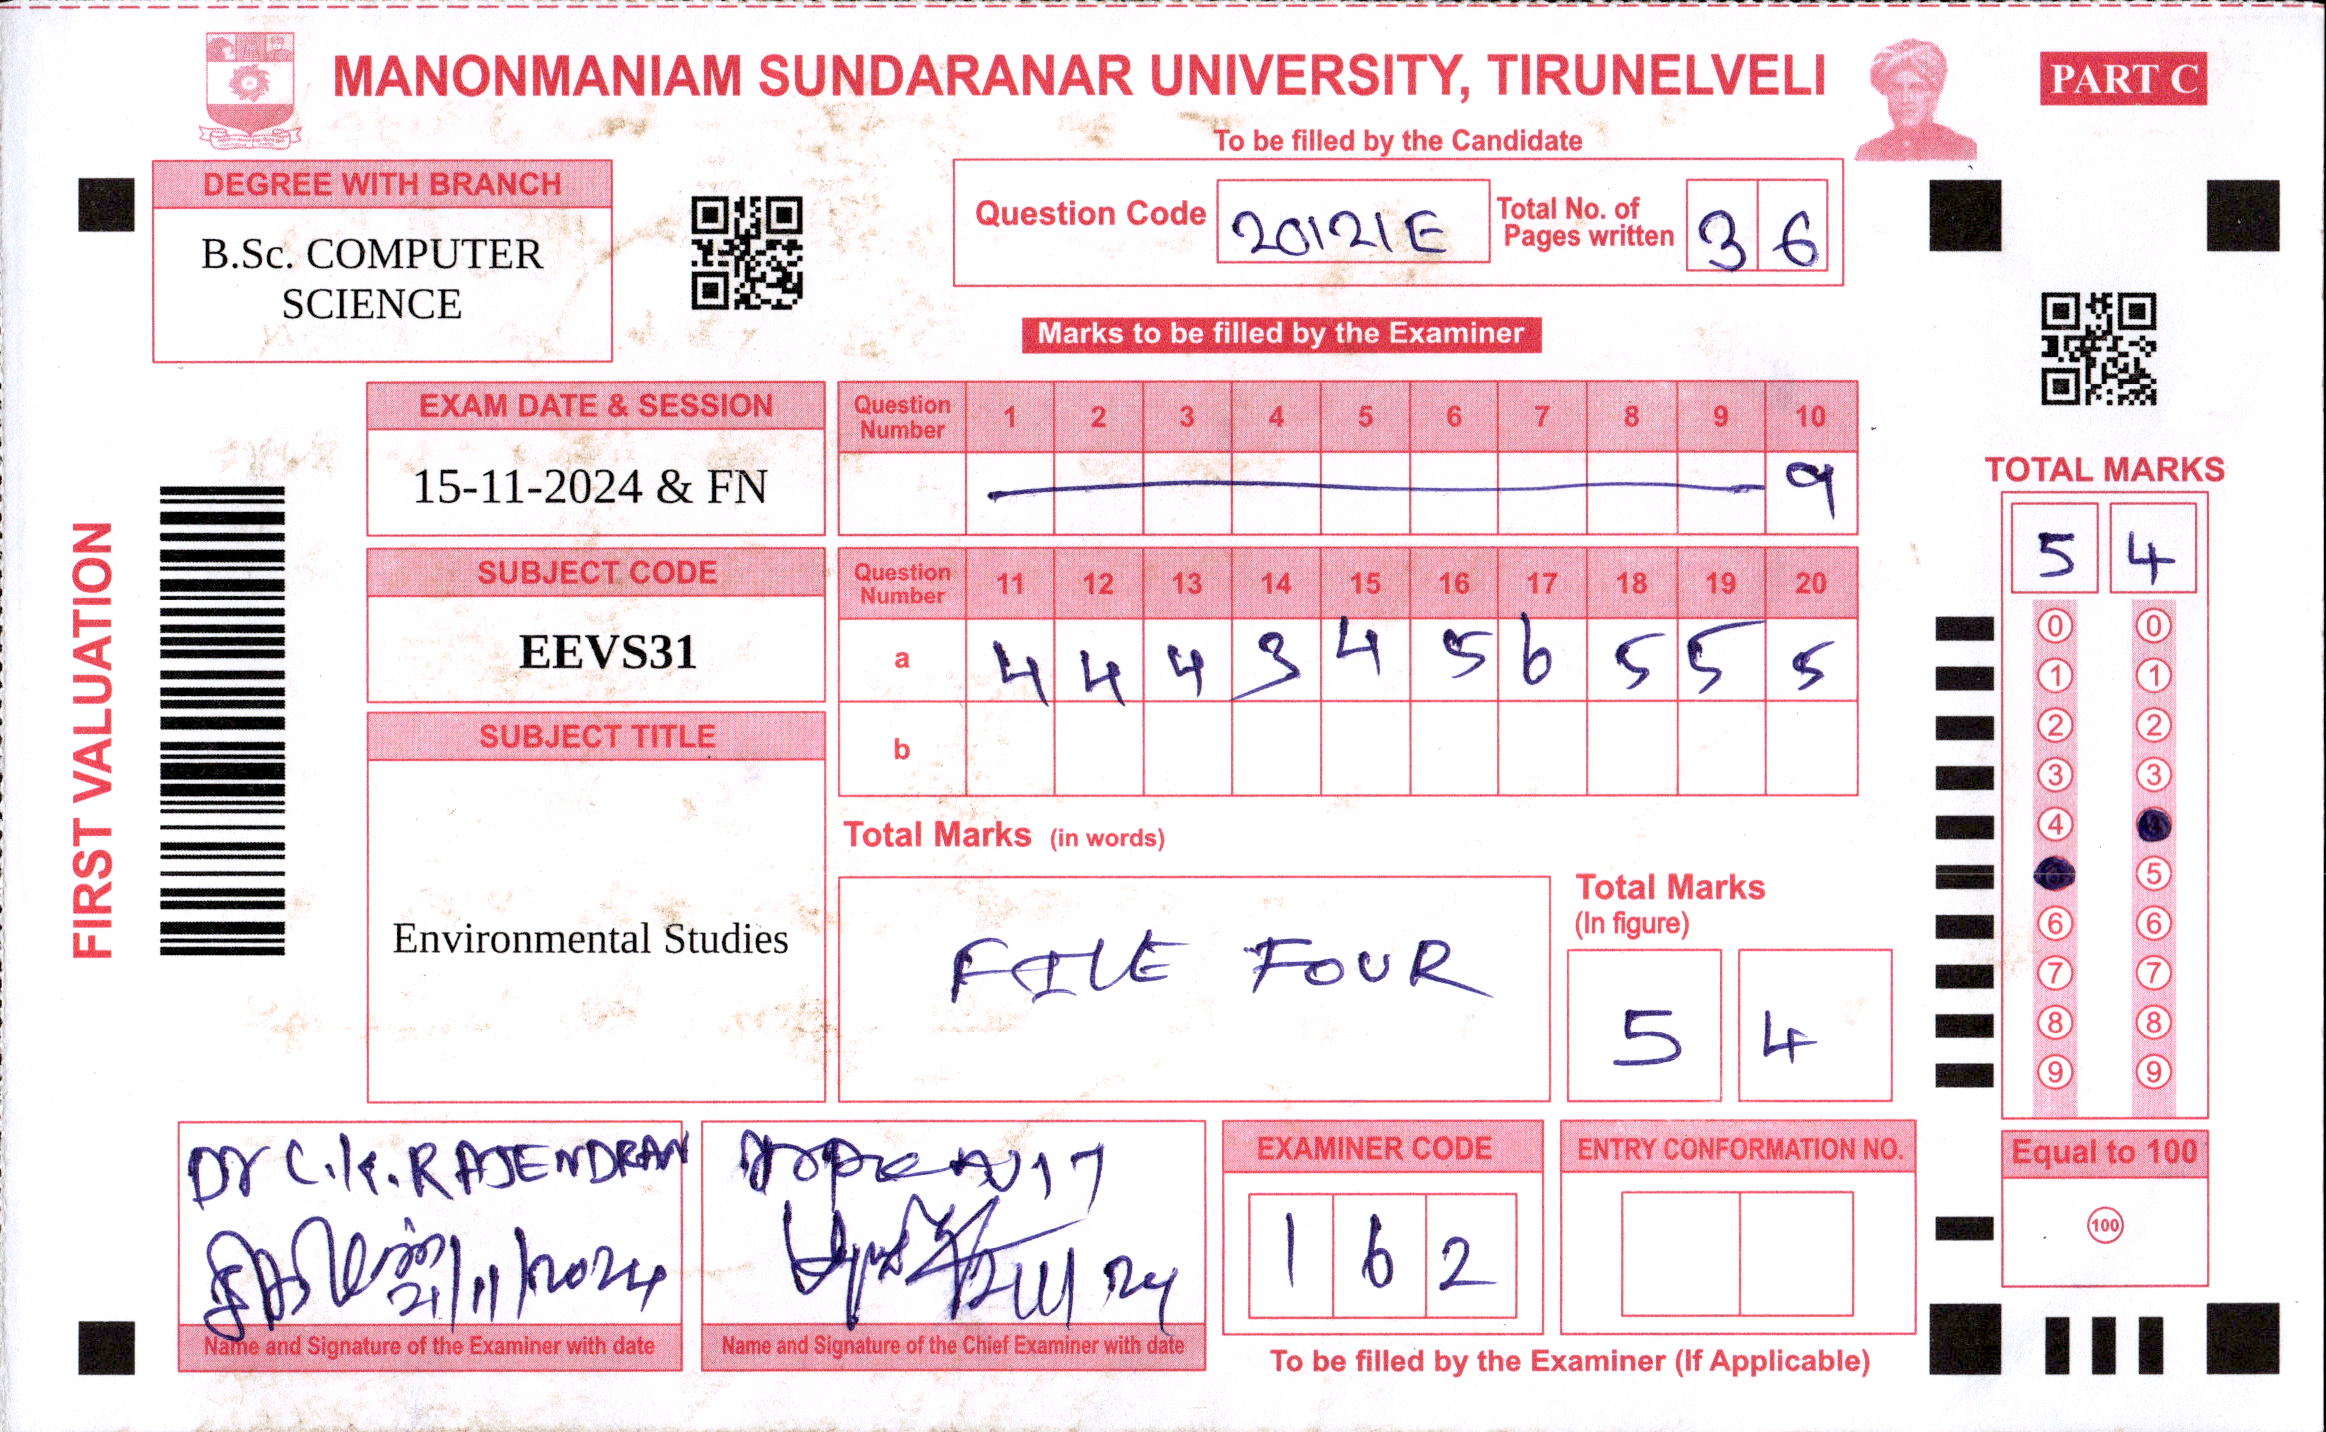 MANONMANIAM SUNDARANAR UNIVERSITY, TIRUNELVELI
PART C
To be filled by the Candidate
DEGREE WITH BRANCH
B.Sc. COMPUTER
SCIENCE
Question Code 20121E Total No. of Pages written 3 6
Marks to be filled by the Examiner
FIRST VALUATION
EXAM DATE & SESSION
15-11-2024 & FN
Question Number 1 2 3 4 5 6 7 8 9 10
9
SUBJECT CODE
EEVS31
Question Number 11 12 13 14 15 16 17 18 19 20
a 4 4 4 3 4 5 6 5 5 5
b
SUBJECT TITLE
Environmental Studies
Total Marks (in words)
FIVE FOUR
Total Marks
(In figure)
5 4
TOTAL MARKS
5 4
0 0
1 1
2 2
3 3
4
5
6 6
7 7
8 8
9 9
Dr C.K. RAJENDRAN
21/11/2024
Name and Signature of the Examiner with date
Name and Signature of the Chief Examiner with date
EXAMINER CODE
1 6 2
ENTRY CONFORMATION NO.
To be filled by the Examiner (If Applicable)
Equal to 100
100